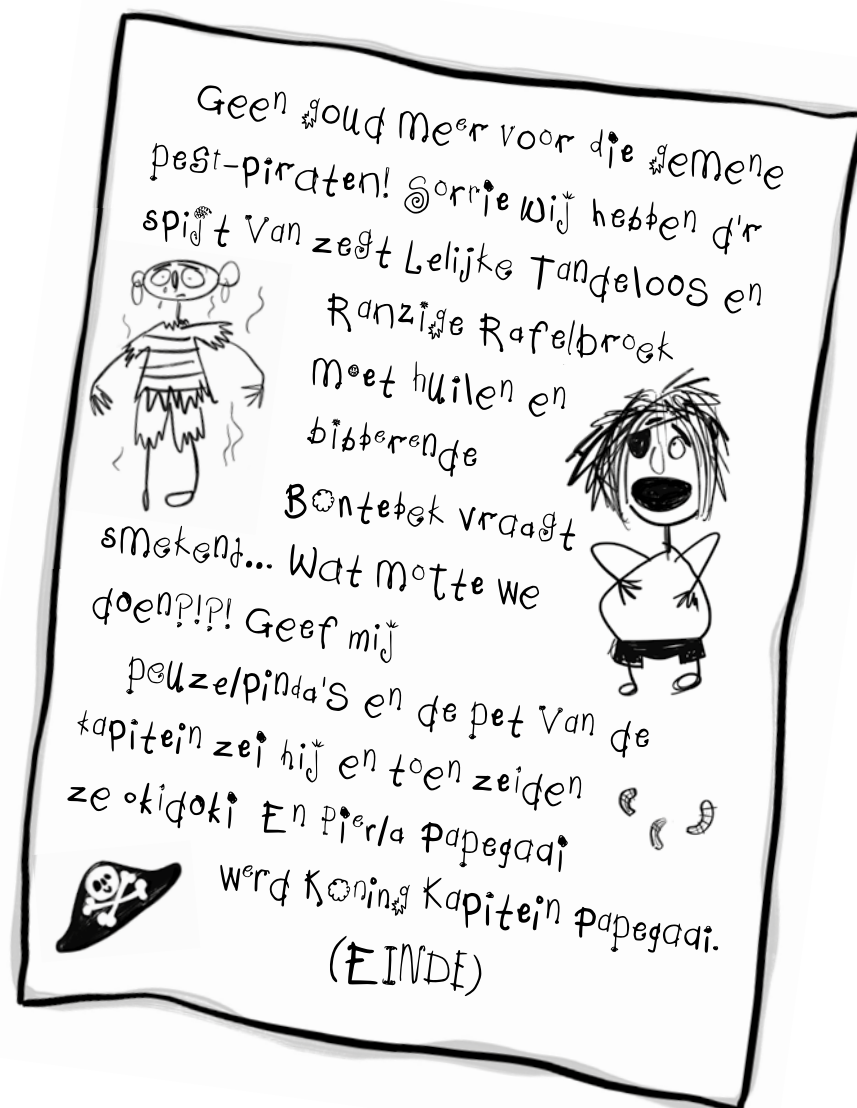 Geen goud meer voor die gemene
pest-piraten! Sorrie wij hebben d'r
spijt van zegt Lelijke Tandeloos en
Ranzige Rafelbroek
moet huilen en
bibberende
Bontebek vraagt
smekend... Wat motte we
doen?!?! Geef mij
peuzelpinda's en de pet van de
kapitein zei hij en toen zeiden
ze okidoki En Pierla Papegaai
werd Koning Kapitein Papegaai.
(EINDE)